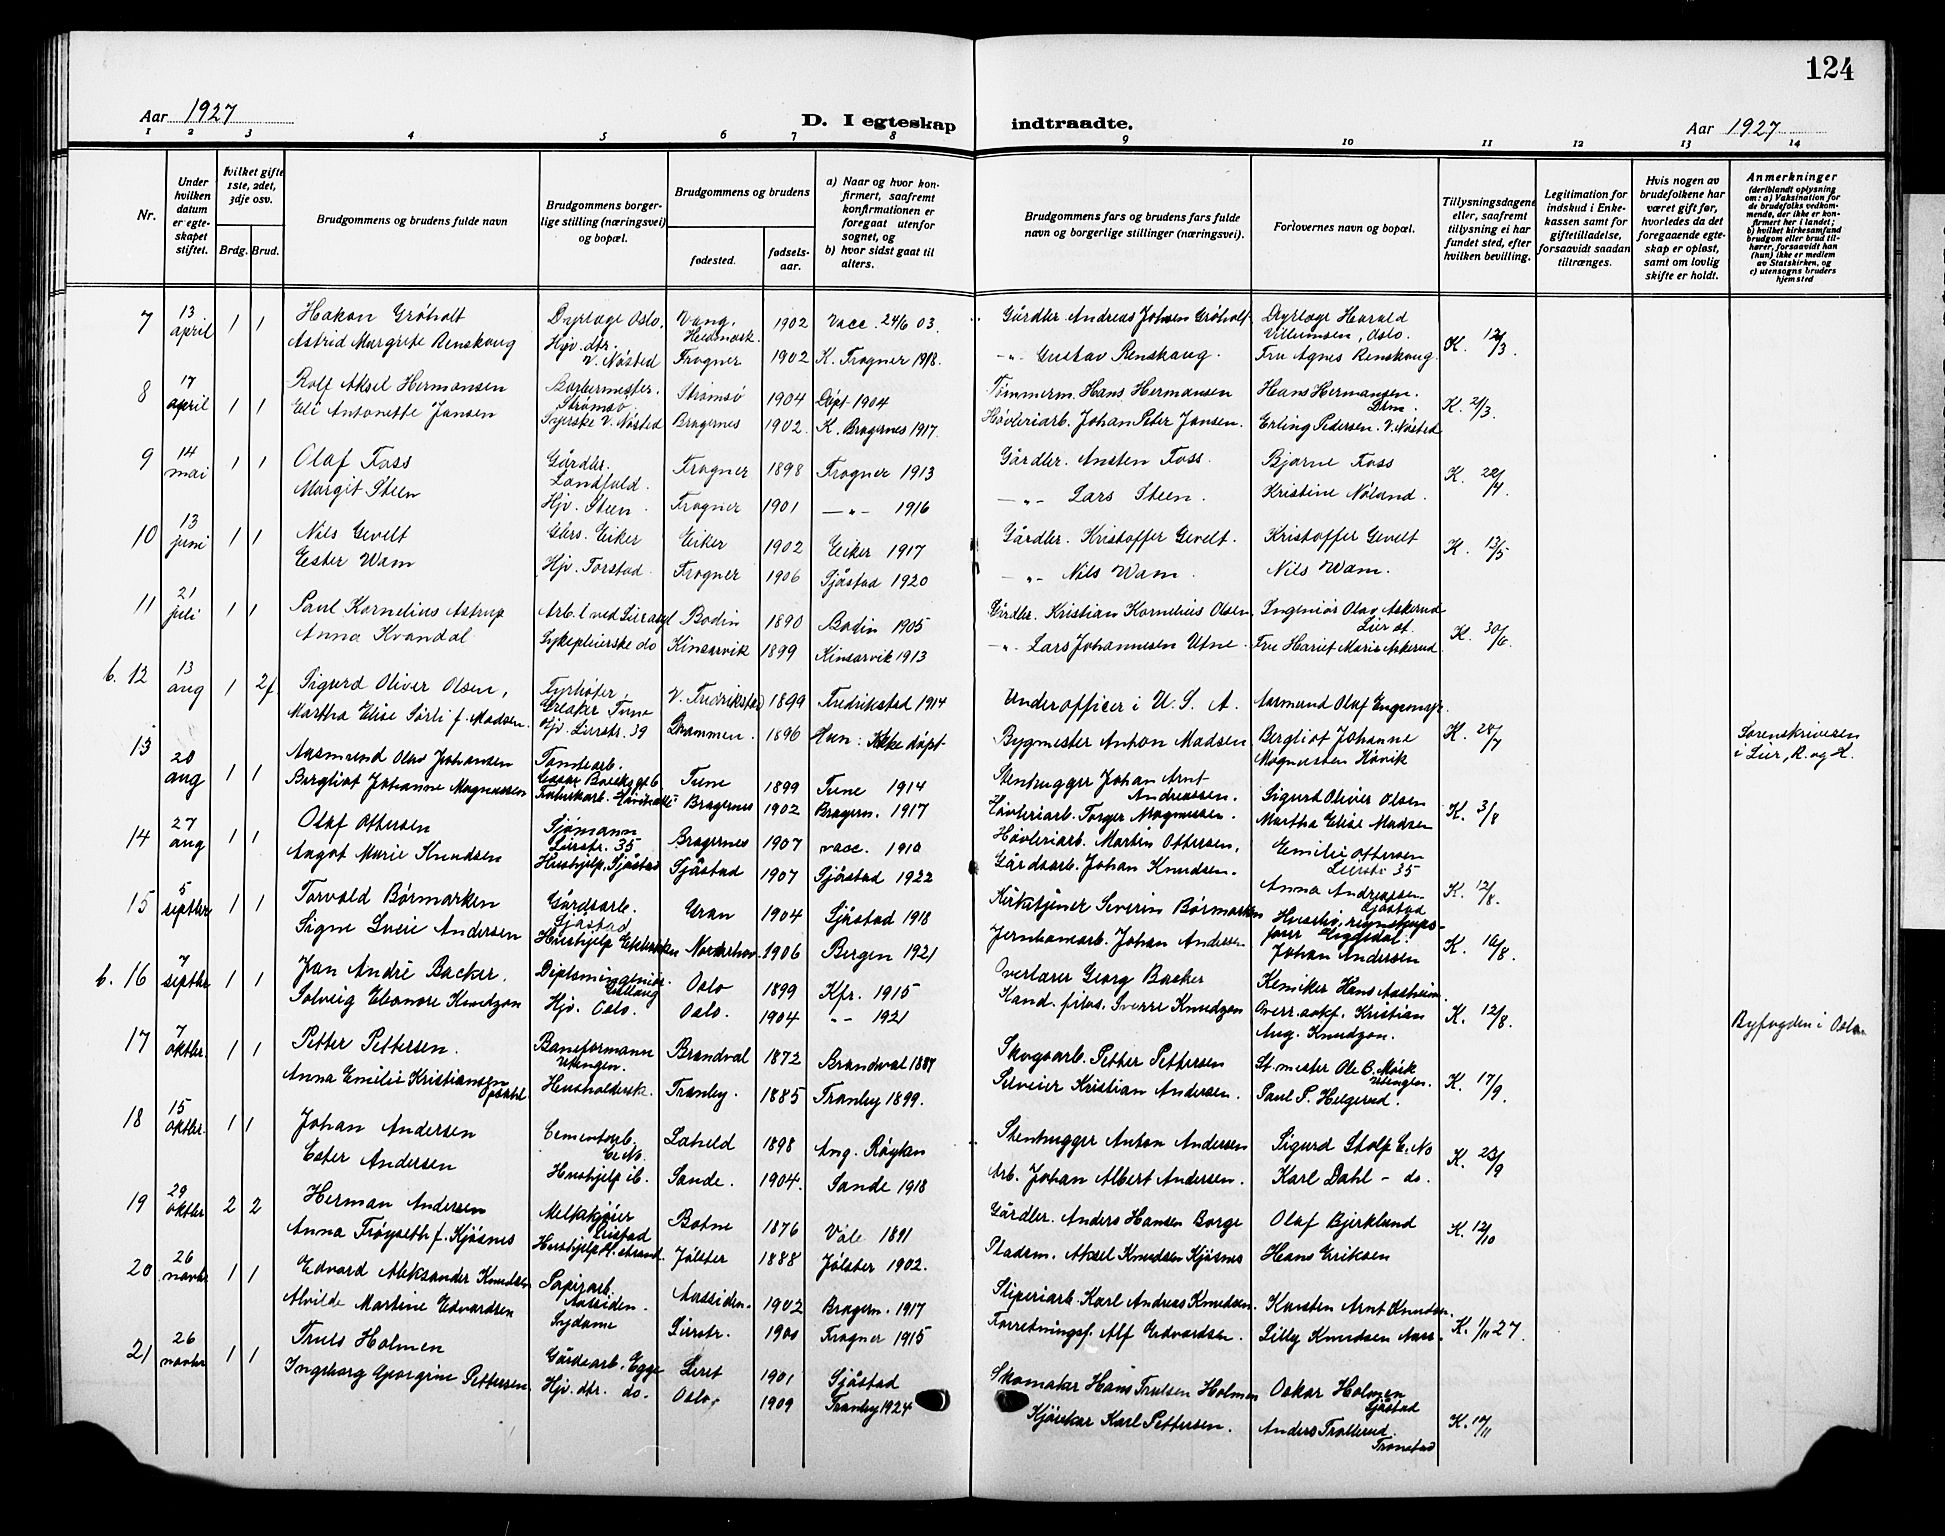 124
Aar 1927
D. I egteskap indtraadte.
Aar 1927
1 2 3 4 5 6 7 8 9 10 11 12 13 14
Nr.
Under hvilken datum er egteskapet stiftet.
hvilket gifte 1ste, 2det, 3dje osv.
Brdg. Brud.
Brudgommens og brudens fulde navn
Brudgommens borgerlige stilling (næringsvei) og bopæl.
Brudgommens og brudens
fødested.
fødselsaar.
a) Naar og hvor konfirmert, saafremt konfirmationen er foregaat utenfor sognet, og
b) hvor sidst gaat til alters.
Brudgommens fars og brudens fars fulde navn og borgerlige stillinger (næringsvei).
Forlovernes navn og bopæl.
Tillysningsdagene eller, saafremt tillysning ei har fundet sted, efter hvilken bevilling.
Legitimation for indskud i Enkekassen samt for giftetilladelse, forsaavidt saadan tiltrænges.
Hvis nogen av brudefolkene har været gift før, hvorledes da det foregaaende egteskap er opløst, samt om lovlig skifte er holdt.
Anmerkninger
(deriblandt oplysning om: a) Vaksination for de brudefolks vedkommende, der ikke er konfirmert her i landet; b) hvilket kirkesamfund brudgom eller brud tilhører, forsaavidt han (hun) ikke er medlem av Statskirken, og c) utensogns bruders hjemsted
7 13 april 1 1 Hakon Grøholt Dyrlæge Oslo. Vang. Hedmark 1902 Vacc. 24/6 03. Gårdbr. Andreas Johsen Grøholt Dyrlæge Harald Villumsen, Oslo. K. 12/3.
Astrid Margrete Renskaug Hjv. dtr. V. Nøsted Frogner 1902 K. Frogner 1918. -"- Gustav Renskaug. Fru Agnes Renskaug.
8 17 april 1 1 Rolf Aksel Hermansen Barbermester. Strømsø Strømsø 1904 Døpt 1904 Tømmerm. Hans Hermansen Hans Hermansen. Drm. K. 21/3.
Eli Antonette Jansen Syerske V. Nøsted Bragernes 1902. K. Bragernes 1917. Høvleriarb. Johan Peter Jansen. Erling Pedersen. V. Nøsted
9 14 mai 1 1 Olaf Foss Gårdbr. Landfald. Frogner 1898 Frogner 1913 Gårdbr. Ansten Foss. Bjarne Foss K. 28/4.
Margit Steen Hjv. Steen. Frogner 1901 -"- 1916 -"- Lars Steen. Kristine Nøland.
10 13 juni 1 1 Nils Gevelt Gbrs. Eiker Eiker 1902 Eiker 1917 Gårdbr. Kristoffer Gevelt. Kristoffer Gevelt K. 13/5
Ester Wam Hjv. Torstad. Frogner 1906 Sjåstad 1920 -"- Nils Wam. Nils Wam.
11 21 juli 1 1 Paul Kornelius Astrup Arb. l ved Lier asyl Bodin 1890 Bodin 1905 Gårdbr. Kristian Kornelius Olsen Ingeniør Olav Askerud Lier st. K. 30/6.
Anna Kvandal Sykepleierske do Kinsarvik 1899 Kinsarvik 1913 -"- Lars Johannesen Utne. Fru Hariet Marie Askerud
b. 12 13 aug 1 2f Sigurd Oliver Olsen, Fyrbøter, Greaker Tune V. Fredrikstad 1899 Fredrikstad 1914 Underofficer i U. S. A. Aasmund Olaf K. 28/7
Martha Elise Sørli f. Madsen. Hjv. Lierstr. 39 Drammen. 1896 Hun: Ikke døpt Bygmester Anton Madsen Bergliot Johanne Magnussen Høvik Sorenskriveren i Lier, R. og H.
13 20 aug 1 1 Aasmund Olav Johansen Tomtearb. Tune 1899 Tune 1914 Stenhugger Johan Arnt Andreassen. Sigurd Oliver Olsen K. 3/8
Bergliot Johanne Magnussen Fabrikarb. Bragernes 1902 Bragern. 1917 Høvleriarb. Torger Magnussen. Martha Elise Madsen
14 27 aug 1 1 Olaf Ottersen Sjømann Lierstr. 35 Bragernes 1907 vacc. 1910 Høvleriarb. Martin Ottersen, Emilie Ottersen Lierstr. 35 K. 12/8.
Angot Marie Knudsen Hushjelp. Sjåstad Sjåstad 1907 Sjåstad 1922 Gårdsarb. Johan Knudsen. Anna Andreassen Sjåstad
15 5 septbr 1 1 Torvald Børmarken Gårdsarb. Sjåstad Gran 1904 Sjåstad 1918 Kirketjener Severin Børmarken K. 16/8.
Signe Sveie Andersen Hushjelp Norderhov. 1906 Bergen 1921 Jernbanearb. Johan Andersen Johan Andersen
b. 16 7 septbr 1 1 Jan André Backer. Diplomingeniør Oslo 1899 Kfr. 1915 Overlærer Georg Backer Kemiker Hans Aasheim K. 12/8.
Solveig Eleonore Knudzon Hjv. Oslo. Oslo. 1904 -"- 1921 Kand. filos. Sverre Knudzon Overr.sakf. Kristian Aug. Knudzon. Byfogden i Oslo
17 7 oktbr. 1 1 Petter Pettersen. Baneformann Brandval 1872 Brandval 1887 Skogsarb. Petter Pettersen St.mester Ole B. Mørk K. 17/9.
Anna Emilie Kristiansen Opsahl Husholdersk. Tranby. 1885 Tranby 1899. Selveier Kristian Andersen. Paul P. Helgerud.
18 15 oktbr. 1 1 Johan Andersen Cementarb. 1898 Ang. Røyken Stenhugger Anton Andersen Sigurd K. 23/9
Ester Andersen Hushjelp ib. Sande. 1904. Sande 1918 Arb. Johan Albert Andersen. Karl Dahl - do.
19 29 oktbr 2 2 Herman Andersen Melkekjører Botne 1876 Våle 1891 Gårdbr. Anders Hansen Borge Olaf Bjerklund K. 12/10
Anna Frøyseth f. Kjøsnes Hushjelp H.strand. Jølster 1888 Jølster 1902. Pladsm. Aksel Knudsen Kjøsnes Hans Eriksen
20 26 novbr 1 1 Edvard Aleksander Knudsen Papirarb. Aassiden. Aassiden. 1902 Bragern. 1917 Sliperiarb. Karl Andreas Knudsen. Karsten Arnt Knudsen. K. 1/11 27.
Alvilde Martine Edvardsen Sydame Lierstr. 1900 Frogner 1915 Forretningsf. Alf Edvardsen. Lilly Knudsen Aass.
21 26 novbr 1 1 Truls Holmen Gårdsarb. Egge Lier 1901 Sjåstad Skomaker Hans Trulsen Holmen Oskar Holmen Sjåstad K. 10/11
Ingeborg Georgine Pettersen Hjv. dtr. do. Oslo, 1909 Tranby 1924 Kjøreskar Karl Pettersen. Anders Trollerud. Tronstad